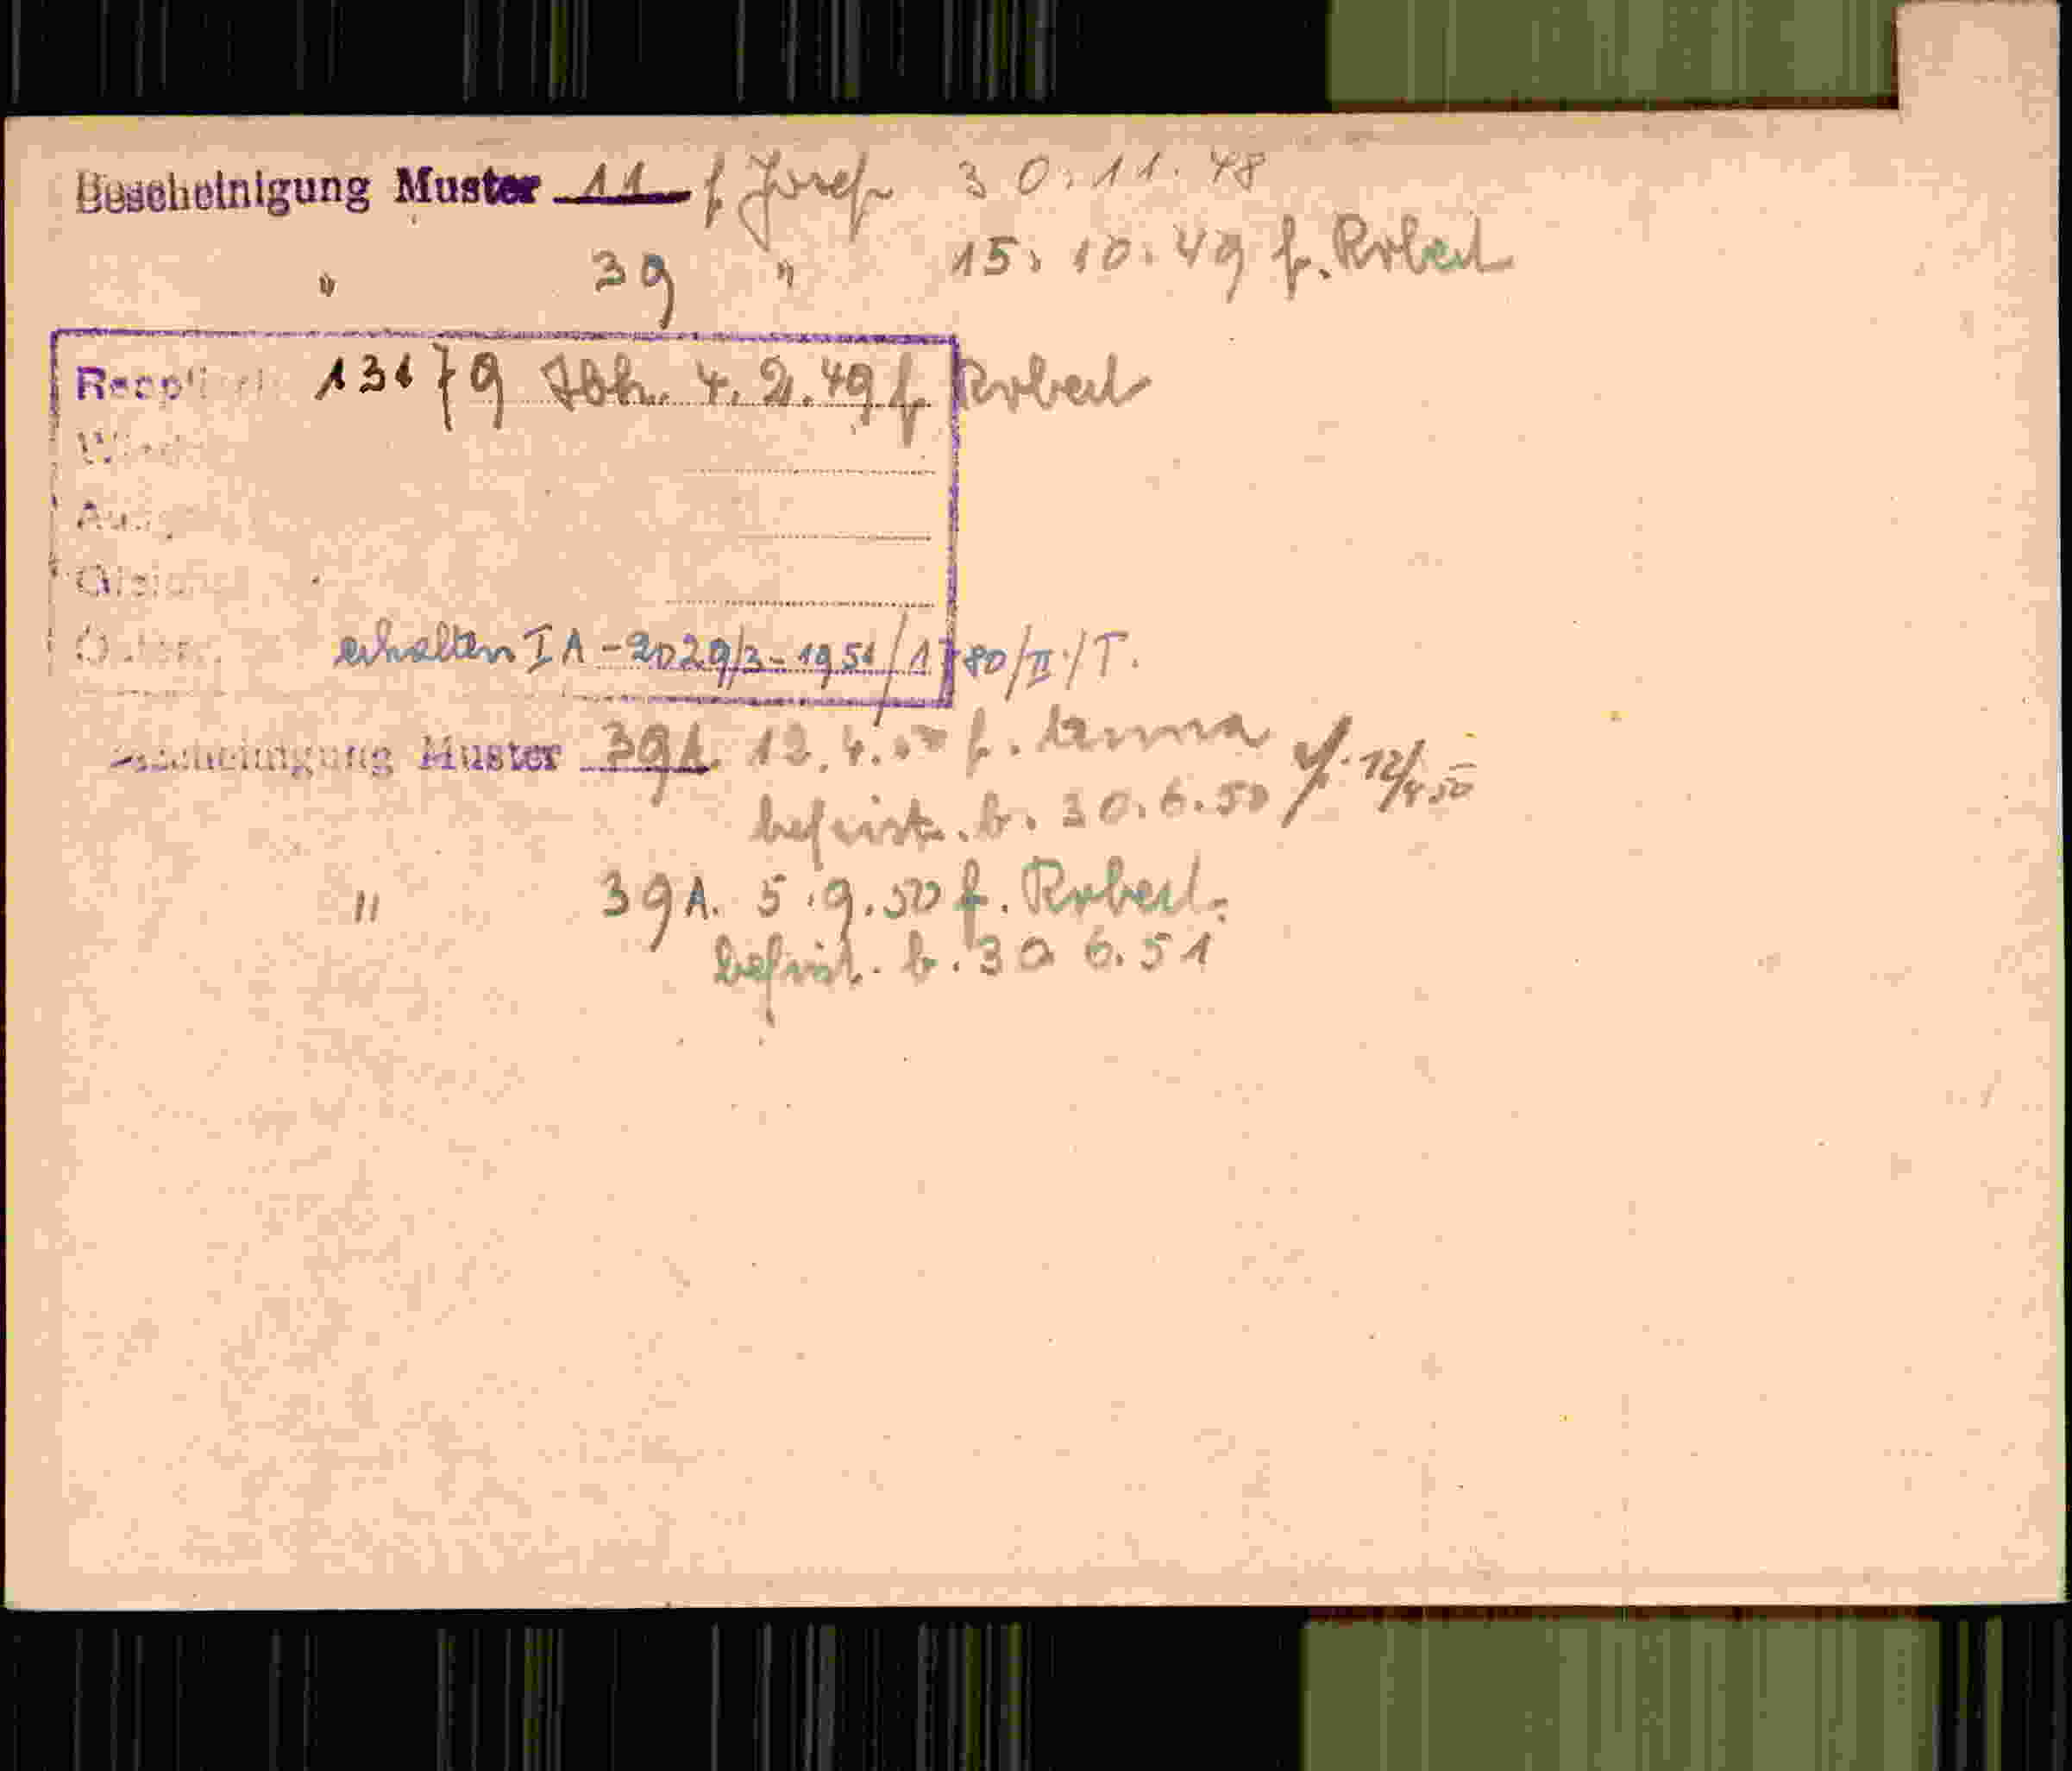 Bescheinigung Muster 11 f Josef 30.11.48
" 39 " 15.10.49 f. Robert
13179 Abh. 4.2.49 f Robert
erhalten IA-2029/3-1951/1780/II/T.
Muster 39A. 12.4.50 f. 12/4 50
befrist. b. 30.6.50
" 39A. 5.9.50 f. Robert.
befrist. b. 30 6.51